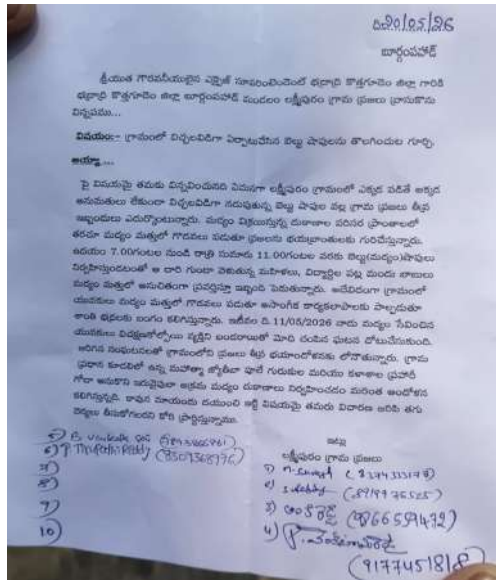 ది:20/05/26
బూర్గంపహాడ్
శ్రీయుత గౌరవనీయులైన ఎక్సైజ్ సూపరింటెండెంట్ భద్రాద్రి కొత్తగూడెం జిల్లా గారికి
భద్రాద్రి కొత్తగూడెం జిల్లా బూర్గంపహాడ్ మండలం లక్ష్మీపురం గ్రామ ప్రజలు వ్రాసుకొను
విన్నపము...
విషయం:- గ్రామంలో విచ్చలవిడిగా ఏర్పాటుచేసిన బెల్టు షాపులను తొలగించుట గూర్చి.
అయ్యా....
పై విషయమై తమకు విన్నవించునది ఏమనగా లక్ష్మీపురం గ్రామంలో ఎక్కడ పడితే అక్కడ
అనుమతులు లేకుండా విచ్చలవిడిగా నడుపుతున్న బెల్టు షాపుల వల్ల గ్రామ ప్రజలు తీవ్ర
ఇబ్బందులు ఎదుర్కొంటున్నారు. మద్యం విక్రయిస్తున్న దుకాణాల పరిసర ప్రాంతాలలో
తరచూ మద్యం మత్తులో గొడవలు పడుతూ ప్రజలను భయభ్రాంతులకు గురిచేస్తున్నారు.
ఉదయం 7.00గంటల నుండి రాత్రి సుమారు 11.00గంటల వరకు బెల్టు(మద్యం)షాపులు
నిర్వహిస్తుండటంతో ఆ దారి గుండా వెళుతున్న మహిళలు, విద్యార్థుల పట్ల మందు బాబులు
మద్యం మత్తులో అనుచితంగా ప్రవర్తిస్తూ ఇబ్బంది పెడుతున్నారు. అదేవిధంగా గ్రామంలో
యువకులు మద్యం మత్తులో గొడవలు పడుతూ అసాంఘిక కార్యకలాపాలకు పాల్పడుతూ
శాంతి భద్రతలకు బంగం కలిగిస్తున్నారు. ఇటీవల ది.11/05/2026 నాడు మద్యం సేవించిన
యువకులు విచక్షణకోల్పోయి వ్యక్తిని బండరాయితో మోది చంపిన ఘటన చోటుచేసుకుంది.
జరిగిన సంఘటనలతో గ్రామంలోని ప్రజలు తీవ్ర భయాందోళనకు లోనౌతున్నారు. గ్రామ
ప్రధాన కూడలిలో ఉన్న మహాత్మా జ్యోతిబా పూలే గురుకుల మరియు కళాశాల ప్రహరీ
గోడా ఆనుకొని ఇరువైపులా అక్రమ మద్యం దుకాణాలు నిర్వహించడం మరింత ఆందోళన
కలిగిస్తున్నది. కావున మాయందు దయుంచి ఇట్టి విషయమై తమరు విచారణ జరిపి తగు
చర్యలు తీసుకోగలరని కోరి ప్రార్థిస్తున్నాము.
ఇట్లు
లక్ష్మీపురం గ్రామ ప్రజలు
5)
6) P. Thirupathi Reddy (8309368976)
7)
8)
9)
10)
1) (8374333178)
2) (8919976525)
3) (9866559472)
4) (9177451818)